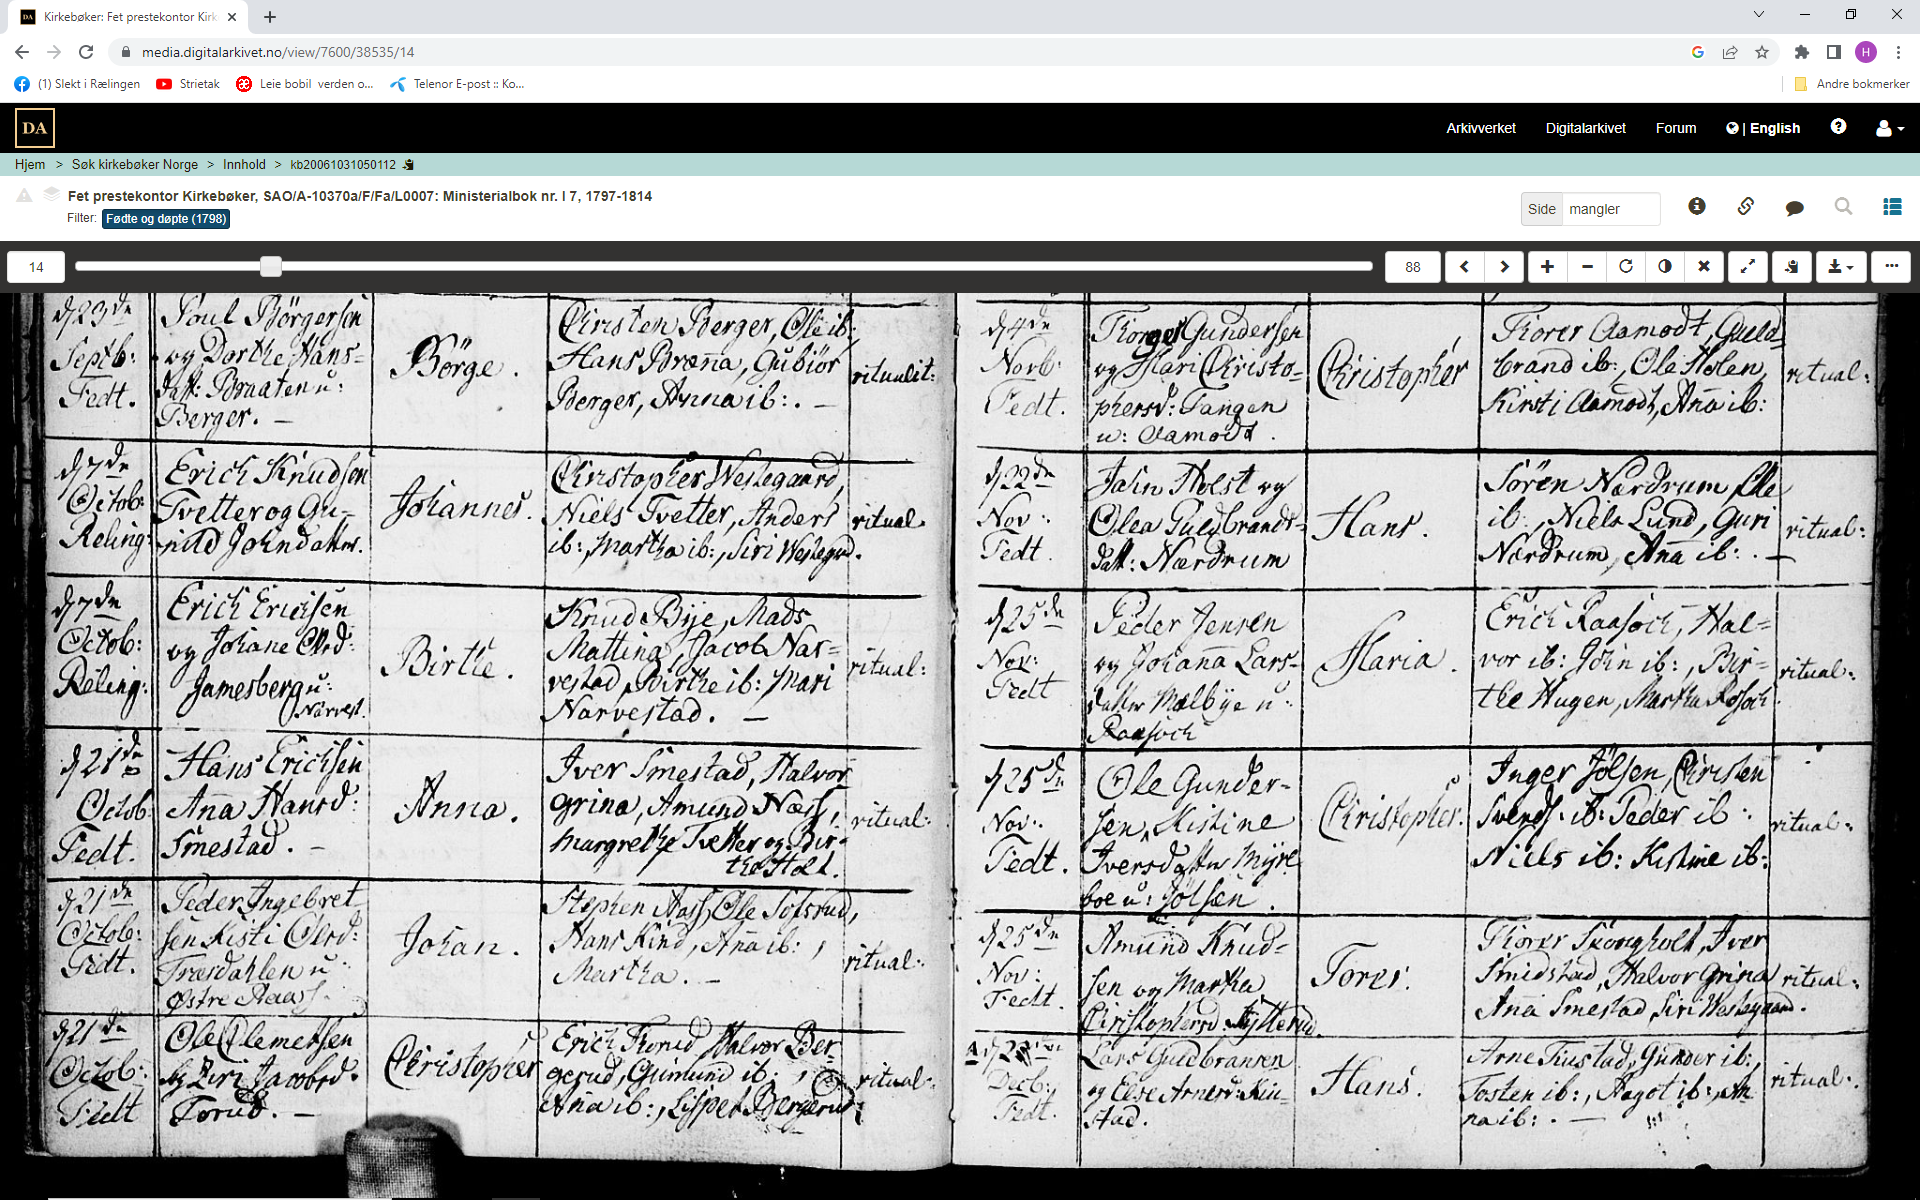 Kirkebøker: Fet prestekontor Kirk
media.digitalarkivet.no/view/7600/38535/14
H
(1) Slekt i Rælingen
Strietak
Leie bobil verden o...
Telenor E-post :: Ko...
Andre bokmerker
DA
Arkivverket
Digitalarkivet
Forum
| English
Hjem > Søk kirkebøker Norge > Innhold > kb20061031050112
Fet prestekontor Kirkebøker, SAO/A-10370a/F/Fa/L0007: Ministerialbok nr. I 7, 1797-1814
Filter: Fødte og døpte (1798)
Side mangler
14
88
d 23de
Septb:
Fedt.
Poul Börgersen
og Dorthe Hans-
datt: Braaten u:
Berger. —
Börge.
Christen Berger, Ole ib:
Hans Bræna, Gubiör
Berger, Anna ib: . —
ritualit:
d 7de
Octob:
Reling:
Erich Knudsen
Tvetter og Gu-
nild Johndatter.
Johannes.
Christopher Westegaard,
Niels Tvetter, Anders
ib:, Martha ib:, Siri Westegrd.
ritual:
d 7de
Octob:
Reling:
Erich Erichsen
og Johane Olsd:
Jamesberg u:
Narvest.
Birthe.
Knud Bye, Mads
Matting, Jacob Nar-
vestad, Birthe ib: Mari
Narvestad. —
ritual:
d 21de
Octob
Fedt.
Hans Erichsen
Ana Hansd:
Smestad. —
Anna.
Iver Smestad, Halvor
Grina, Amund Næss,
Margrethe Tvetter og Bir-
the Holt.
ritual:
d 21de
Octob:
Fedt.
Peder Ingebret
sen Kisti Olsd:
Træsdahlen u:
Østre Aaas.
Johan.
Stephen Aass, Ole Tofsrud,
Hans Kind, Ana ib: ,
Martha. —
ritual:
d 21de
Octob:
Fedt
Ole Clemetsen
og Siri Jacobsd.
Torud. —
Christopher
Erich Torud Halvor Ber-
gerud, Gumund ib: ,
Ana ib:, Lispet Bergerud
ritual:
d 4de
Novb:
Fedt.
Torger Gundersen
og Mari Christo-
phersd: Tangen
u: Aamodt.
Christopher
Torer Aamodt, Guld-
brand ib:, Ole Holen,
Kirsti Aamodt, Ana ib:
ritual:
d 22de
Nov:
Fedt.
Jahn Holst og
Olea Guldbrands-
datt: Nærdrum
Hans.
Sören Nærdrum, Ole
ib: , Niels Lund, Guri
Nærdrum, Ana ib: . —
ritual:
d 25de
Nov:
Fedt
Peder Jensen
og Johana Lars-
datter Mælbye u:
Raasoch
Maria.
Erich Raasoch, Hal-
vor ib: John ib: , Bir-
the Hugen, Martha Rosoch
ritual:
d 25de
Nov:
Fedt.
Ole Gunder-
sen, Kistine
Iversdatter Myre
boe u: Jölsen.
Christopher.
Inger Jölsen, Christen
Svends: ib: Peder ib:
Niels ib: Kistine ib:
ritual:
d 25de
Nov:
Fedt.
Amund Knud-
sen og Martha
Christophersd:
Torer.
Torer Skongholt, Iver
Smidstad, Halvor Grina
Ana Smestad, Siri Westegaard.
ritual:
Decb:
Fedt.
Lars Guldbransen
og Else Arnesd: Kiu-
stad.
Hans.
Arne Tiustad, Gunder ib:
Tosten ib:, Aagot ib:, An-
na ib: . —
ritual: